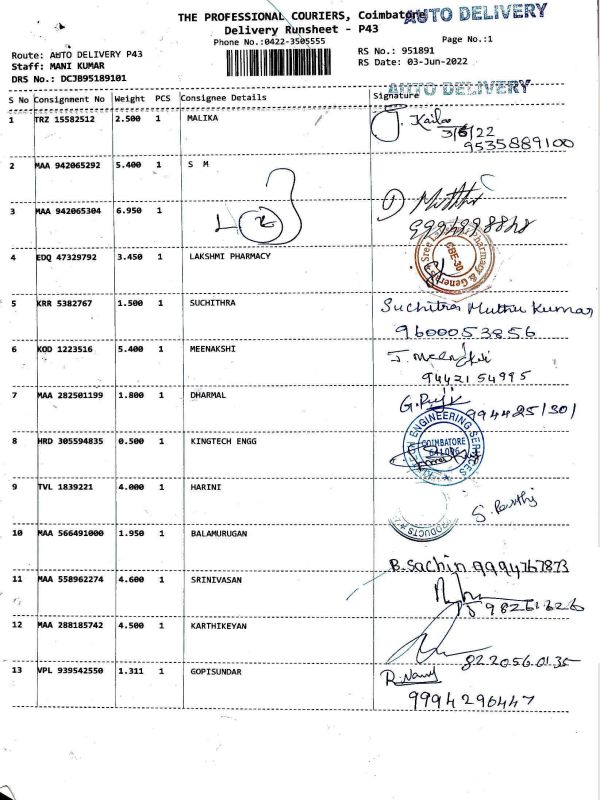 THE PROFESSIONAL COURIERS, Coimbatore
AUTO DELIVERY
Delivery Runsheet - P43
Phone No.:0422-3505555
Page No.:1
Route: AUTO DELIVERY P43
RS No.: 951891
Staff: MANI KUMAR
RS Date: 03-Jun-2022
DRS No.: DCJB95189101
AUTO DELIVERY
S No Consignment No Weight PCS Consignee Details Signature
1 TRZ 15582512 2.500 1 MALIKA
J. Kailas
3/6/22
9535889100
2 MAA 942065292 5.400 1 S M
3 MAA 942065304 6.950 1
4 EDQ 47329792 3.450 1 LAKSHMI PHARMACY
CBE-30
5 KRR 5382767 1.500 1 SUCHITHRA
Suchitra Muthu Kumar
9600053856
6 KOD 1223516 5.400 1 MEENAKSHI
9442154995
7 MAA 282501199 1.800 1 DHARMAL
9944251301
8 HRD 305594835 0.500 1 KINGTECH ENGG
ENGINEERING SERVICES
COIMBATORE
9 TVL 1839221 4.000 1 HARINI
PRODUCTS
10 MAA 566491000 1.950 1 BALAMURUGAN
B. Sachin 9994767873
11 MAA 558962274 4.600 1 SRINIVASAN
12 MAA 288185742 4.500 1 KARTHIKEYAN
822056.0135
13 VPL 939542550 1.311 1 GOPISUNDAR
9994296447